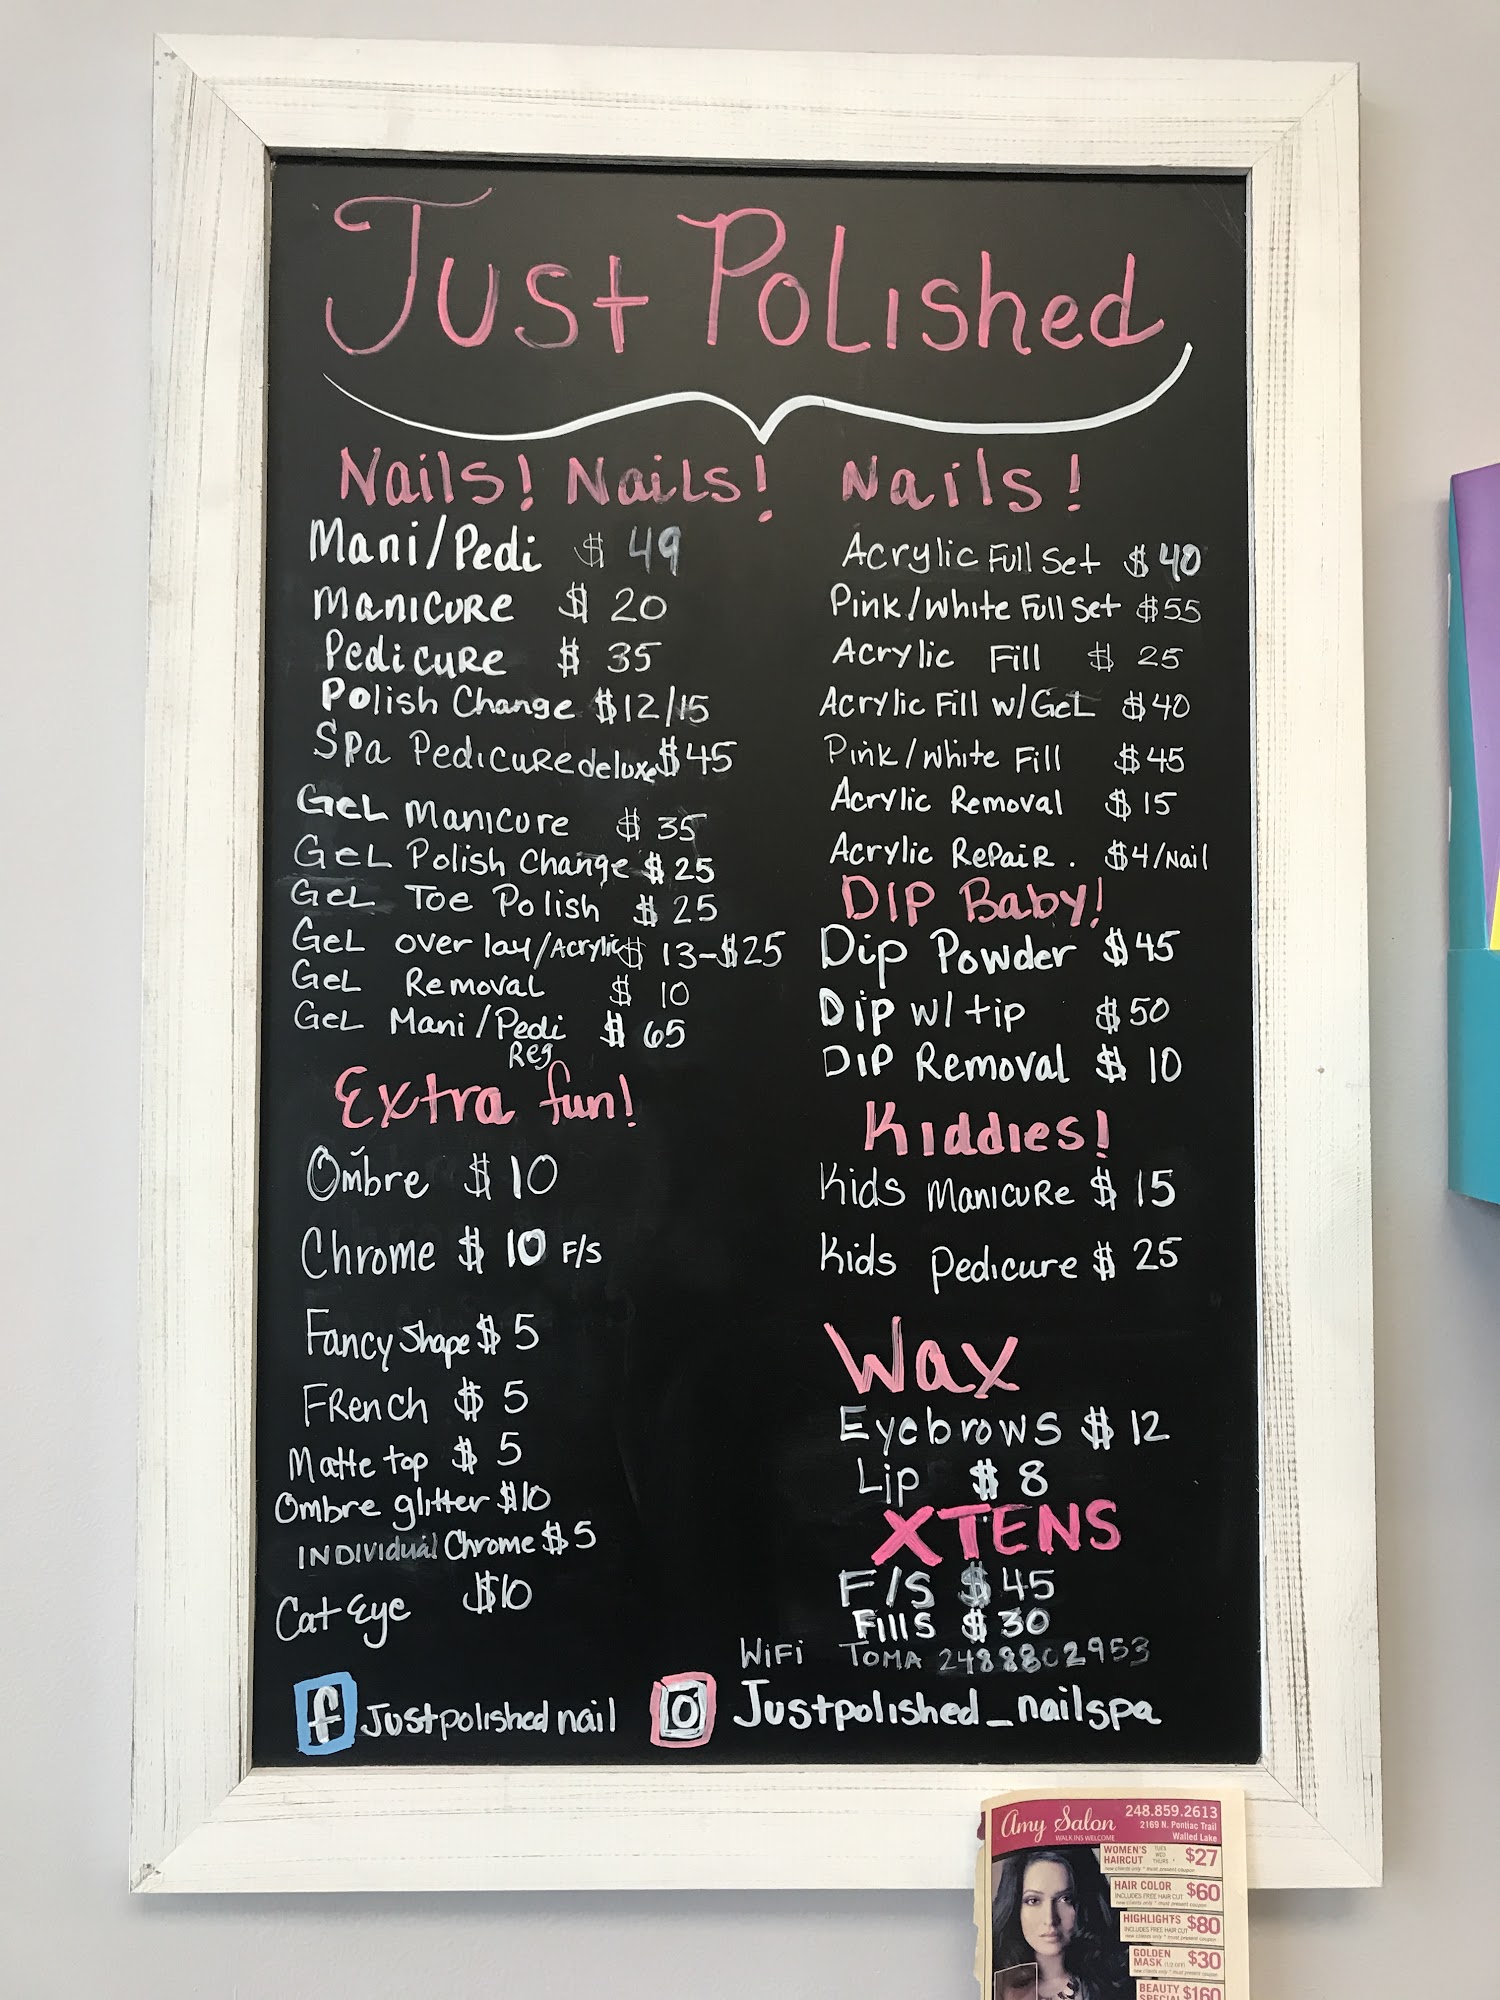 Just Polished
Nails! Nails! Nails!
Mani/Pedi $ 49
Manicure $ 20
Pedicure $ 35
Polish Change $12/15
Spa Pedicure deluxe $45
Gel Manicure $ 35
Gel Polish Change $ 25
Gel Toe Polish $ 25
Gel over lay/Acrylic $ 13-$25
Gel Removal $ 10
Gel Mani/Pedi $ 65
Reg
Extra fun!
Ombre $ 10
Chrome $ 10 F/S
Fancy Shape $ 5
French $ 5
Matte top $ 5
Ombre glitter $10
Individual Chrome $ 5
Cat Eye $10
Acrylic Full Set $ 40
Pink/White Full Set $55
Acrylic Fill $ 25
Acrylic Fill w/Gel $40
Pink/White Fill $45
Acrylic Removal $ 15
Acrylic Repair. $4/Nail
DIP Baby!
Dip Powder $45
Dip w/ tip $50
DIP Removal $ 10
Kiddies!
Kids Manicure $ 15
Kids Pedicure $ 25
Wax
Eyebrows $ 12
Lip $ 8
XTENS
F/S $ 45
Fills $ 30
WiFi TOMA 2488802953
f Justpolished nail
Justpolished_nailspa
Amy Salon
WALK INS WELCOME
248.859.2613
2169 N. Pontiac Trail
Walled Lake
WOMEN'S HAIRCUT TUES WED THURS $27
new clients only * must present coupon
HAIR COLOR $60
INCLUDES FREE HAIR CUT
new clients only * must present coupon
HIGHLIGHTS $80
INCLUDES FREE HAIR CUT
new clients only * must present coupon
GOLDEN MASK (1/2 OFF) $30
new clients only * must present coupon
BEAUTY SPECIAL $160